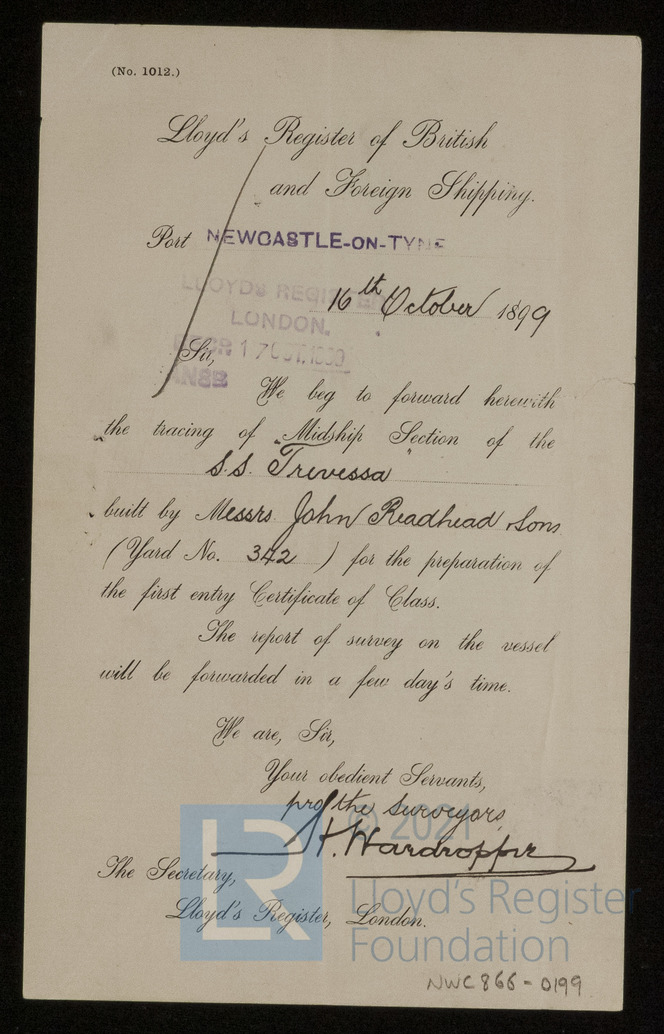 (No. 1012.)
Lloyd's Register of British
and Foreign Shipping.
Port NEWCASTLE-ON-TYNE
LLOYD'S REGISTER
16th October 1899
LONDON.
17 OCT. 1899
Sir,
ANSD
We beg to forward herewith
the tracing of "Midship Section" of the
S.S. Trevessa
built by Messrs. John Readhead Sons
(Yard No. 342) for the preparation of
the first entry Certificate of Class.
The report of survey on the vessel
will be forwarded in a few day's time.
We are, Sir,
Your obedient Servants,
pro the Surveyors
H. Wardropper
© 2021
The Secretary,
Lloyd's Register, London.
LR
Lloyd's Register
Foundation
NWC866-0199